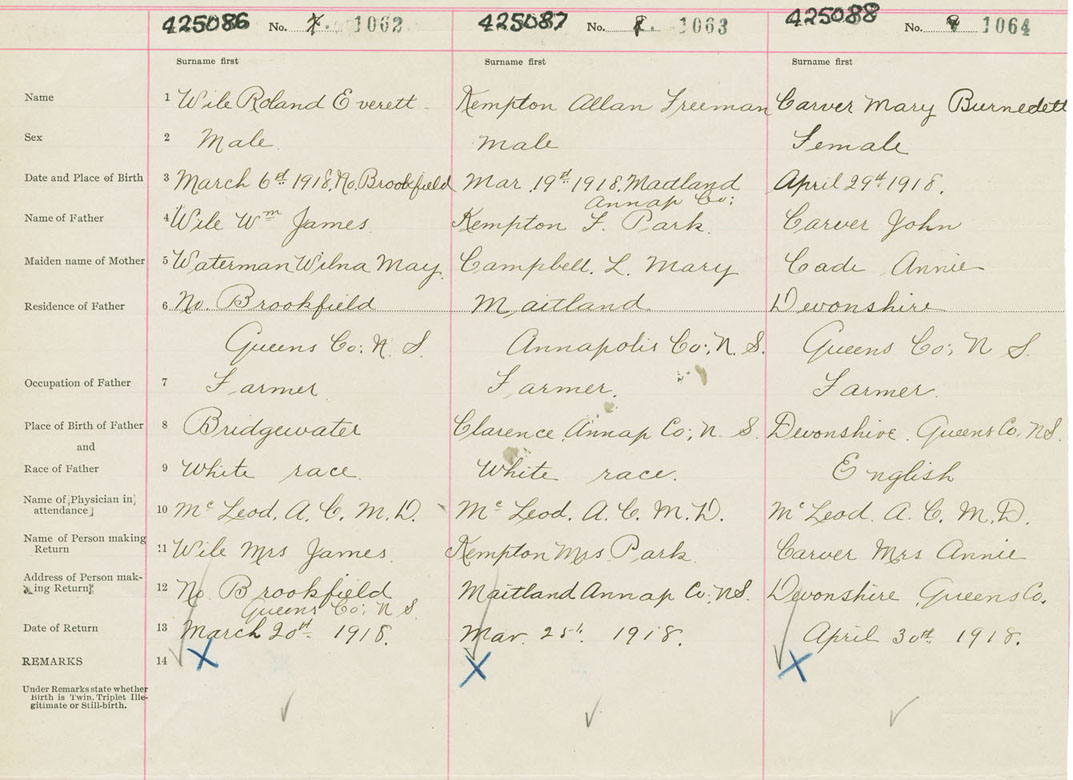 425086 No. 7. 1062 425087 No. 8. 1063 425088 No. 9 1064
Surname first Surname first Surname first
Name 1 Wile Roland Everett. Kempton Allan Freeman Carver Mary Burnedett
Sex 2 Male. male Female
Date and Place of Birth 3 March 6th 1918, No, Brookfield Mar. 19th 1918, Maitland April 29th 1918.
Annap Co;
Name of Father 4 Wile Wm James. Kempton F. Park. Carver John
Maiden name of Mother 5 Waterman Wilna May. Campbell. L. Mary Cade Annie
Residence of Father 6 No. Brookfield Maitland Devonshire
Queens Co; N. S. Annapolis Co; N. S. Queens Co; N S.
Occupation of Father 7 Farmer Farmer. Farmer.
Place of Birth of Father 8 Bridgewater Clarence Annap Co; N. S. Devonshire. Queens Co. N.S.
and
Race of Father 9 White race. White race. English
Name of [Physician in
attendance] 10 Mc Leod, A. C. M. D. Mc Leod. A. C. M. D. Mc Leod. A. C. M. D.
Name of Person making
Return 11 Wile Mrs James. Kempton Mrs Park. Carver Mrs Annie
Address of Person mak-
ing Return 12 No. Brookfield Maitland Annap Co. N.S. Devonshire, Queens Co.
Queens Co; N S
Date of Return 13 March 20th 1918. Mar. 25th 1918. April 30th 1918.
REMARKS 14 X X X
Under Remarks state whether
Birth is Twin, Triplet Ille-
gitimate or Still-birth.